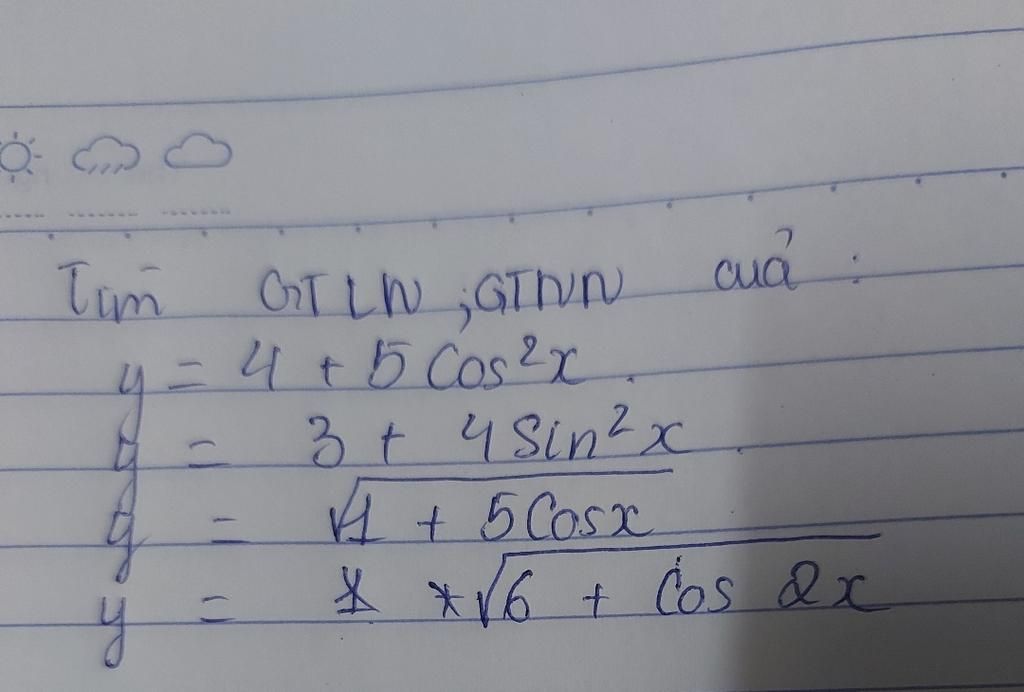 Tìm GTLN ; GTNN cuả :
y = 4 + 5 Cos²x .
y = 3 + 4 Sin²x .
y = √1 + 5 Cosx
y = * √6 + Cos 2x